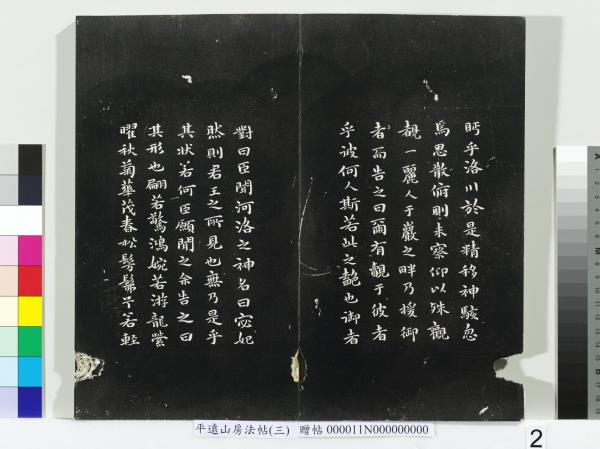 眄乎洛川於是精移神駭忽
焉思散俯則未察仰以殊觀
覩一麗人于巖之畔乃援御
者而告之曰爾有觀于彼者
乎彼何人斯若此之豔也御者
對曰臣聞河洛之神名曰宓妃
然則君王之所見也無乃是乎
其狀若何臣願聞之余告之曰
其形也翩若驚鴻婉若游龍榮
曜秋菊華茂春松髣髴兮若輕
平遠山房法帖(三) 贈帖 000011N000000000
2